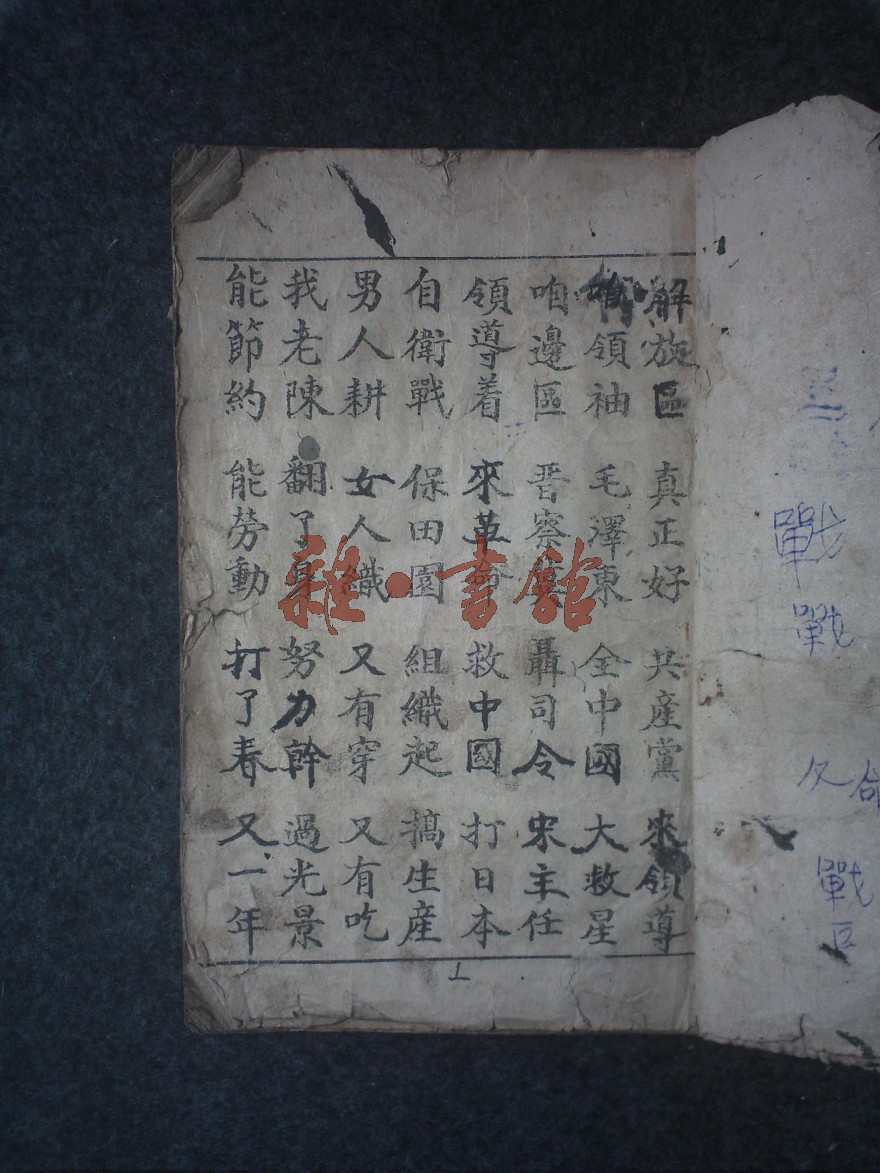 解放區 真正好 共產黨 來領導
咱領袖 毛澤東 全中國 大救星
咱邊區 晋察冀 聶司令 宋主任
領導着 來革命 救中國 打日本
自衛戰 保田園 組織起 搞生産
男人耕 女人織 又有穿 又有吃
我老陳 翻了身 努力幹 過光景
能節約 能勞動 打了春 又一年
雜·書館
戰
戰
戰